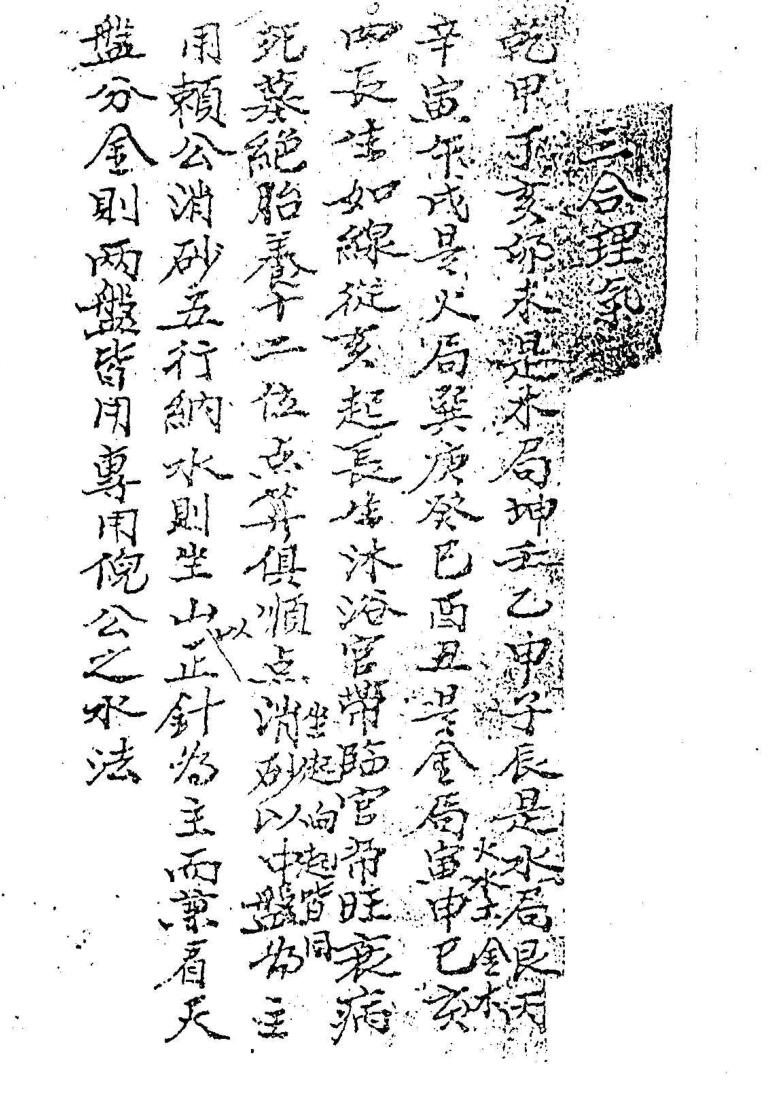 三合理氣
乾甲丁亥卯未是木局坤壬乙甲子辰是水局艮丙
辛寅午戌是火局巽庚癸巳酉丑是金局寅申巳亥
火水土金木
四長生如線從亥起長生沐浴官帶臨官帝旺衰病
坐起向起皆同
死墓絕胎養十二位点算俱順点消砂以中盤為主
用賴公消砂五行納水則坐山以正針為主而兼看天
盤分金則兩盤皆用專用倪公之水法